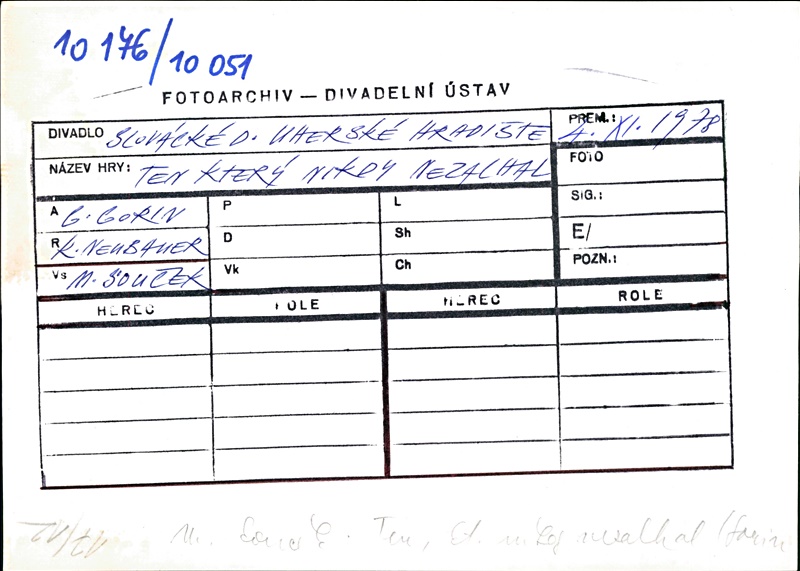 10 176/10 051
FOTOARCHIV — DIVADELNÍ ÚSTAV
DIVADLO SLOVÁCKÉ D. UHERSKÉ HRADIŠTE
PREM.: 4. XI. 1978
NÁZEV HRY: TEN KTERÝ NIKDY NEZALHAL
FOTO
A G. GORIN P L SIG.:
R K. NEUBAUER D Sh E/
Vs M. SOUČEK Vk Ch POZN.:
HEREC ROLE HEREC ROLE
M. Ten, nezalhal (Gorin